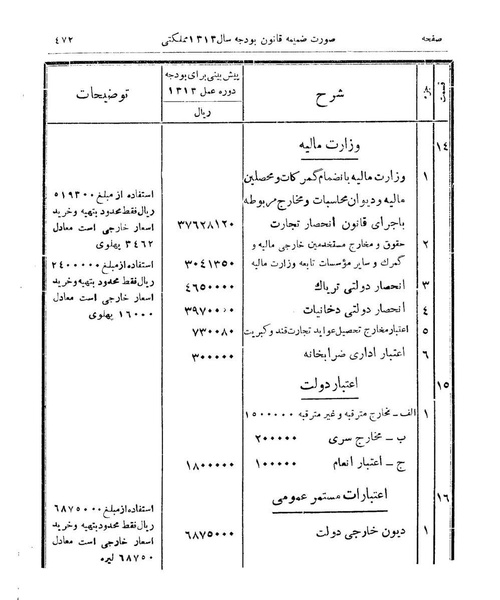 صفحه
صورت ضمیمه قانون بودجه سال ۱۳۱۳ مملکتی
۴۷۲
قسمت
جزء
شرح
پیش بینی برای بودجه
دوره عمل ۱۳۱۳
ریال
توضیحات
۱۴
وزارت مالیه
۱
وزارت مالیه بانضمام گمرکات و محصلین
مالیه و دیوان محاسبات و مخارج مربوطه
باجرای قانون انحصار تجارت
۳۷۶۲۸۱۲۰
استفاده از مبلغ ۵۱۹۳۰۰
ریال فقط محدود بتهیه و خرید
اسعار خارجی است معادل
۳۴۶۲ پهلوی
۲
حقوق و مخارج مستخدمین خارجی مالیه و
گمرك و سایر مؤسسات تابعه وزارت مالیه
۳۰۴۱۳۵۰
استفاده از مبلغ ۲۴۰۰۰۰۰
ریال فقط محدود بتهیه و خرید
اسعار خارجی است معادل
۱۶۰۰۰ پهلوی
۳
انحصار دولتی تریاك
۴۶۵۰۰۰۰
۴
انحصار دولتی دخانیات
۳۹۷۰۰۰۰
۵
اعتبار مخارج تحصیل عواید تجارت قند و کبریت
۷۳۰۰۸۰
۶
اعتبار اداری ضرابخانه
۳۰۰۰۰۰
۱۵
اعتبار دولت
۱
الف - مخارج مترقبه و غیر مترقبه ۱۵۰۰۰۰۰
ب - مخارج سری ۲۰۰۰۰۰
ج - اعتبار انعام ۱۰۰۰۰۰
۱۸۰۰۰۰۰
۱۶
اعتبارات مستمر عمومی
۱
دیون خارجی دولت
۶۸۷۵۰۰۰
استفاده از مبلغ ۶۸۷۵۰۰۰
ریال فقط محدود بتهیه و خرید
اسعار خارجی است معادل
۶۸۷۵۰ لیره